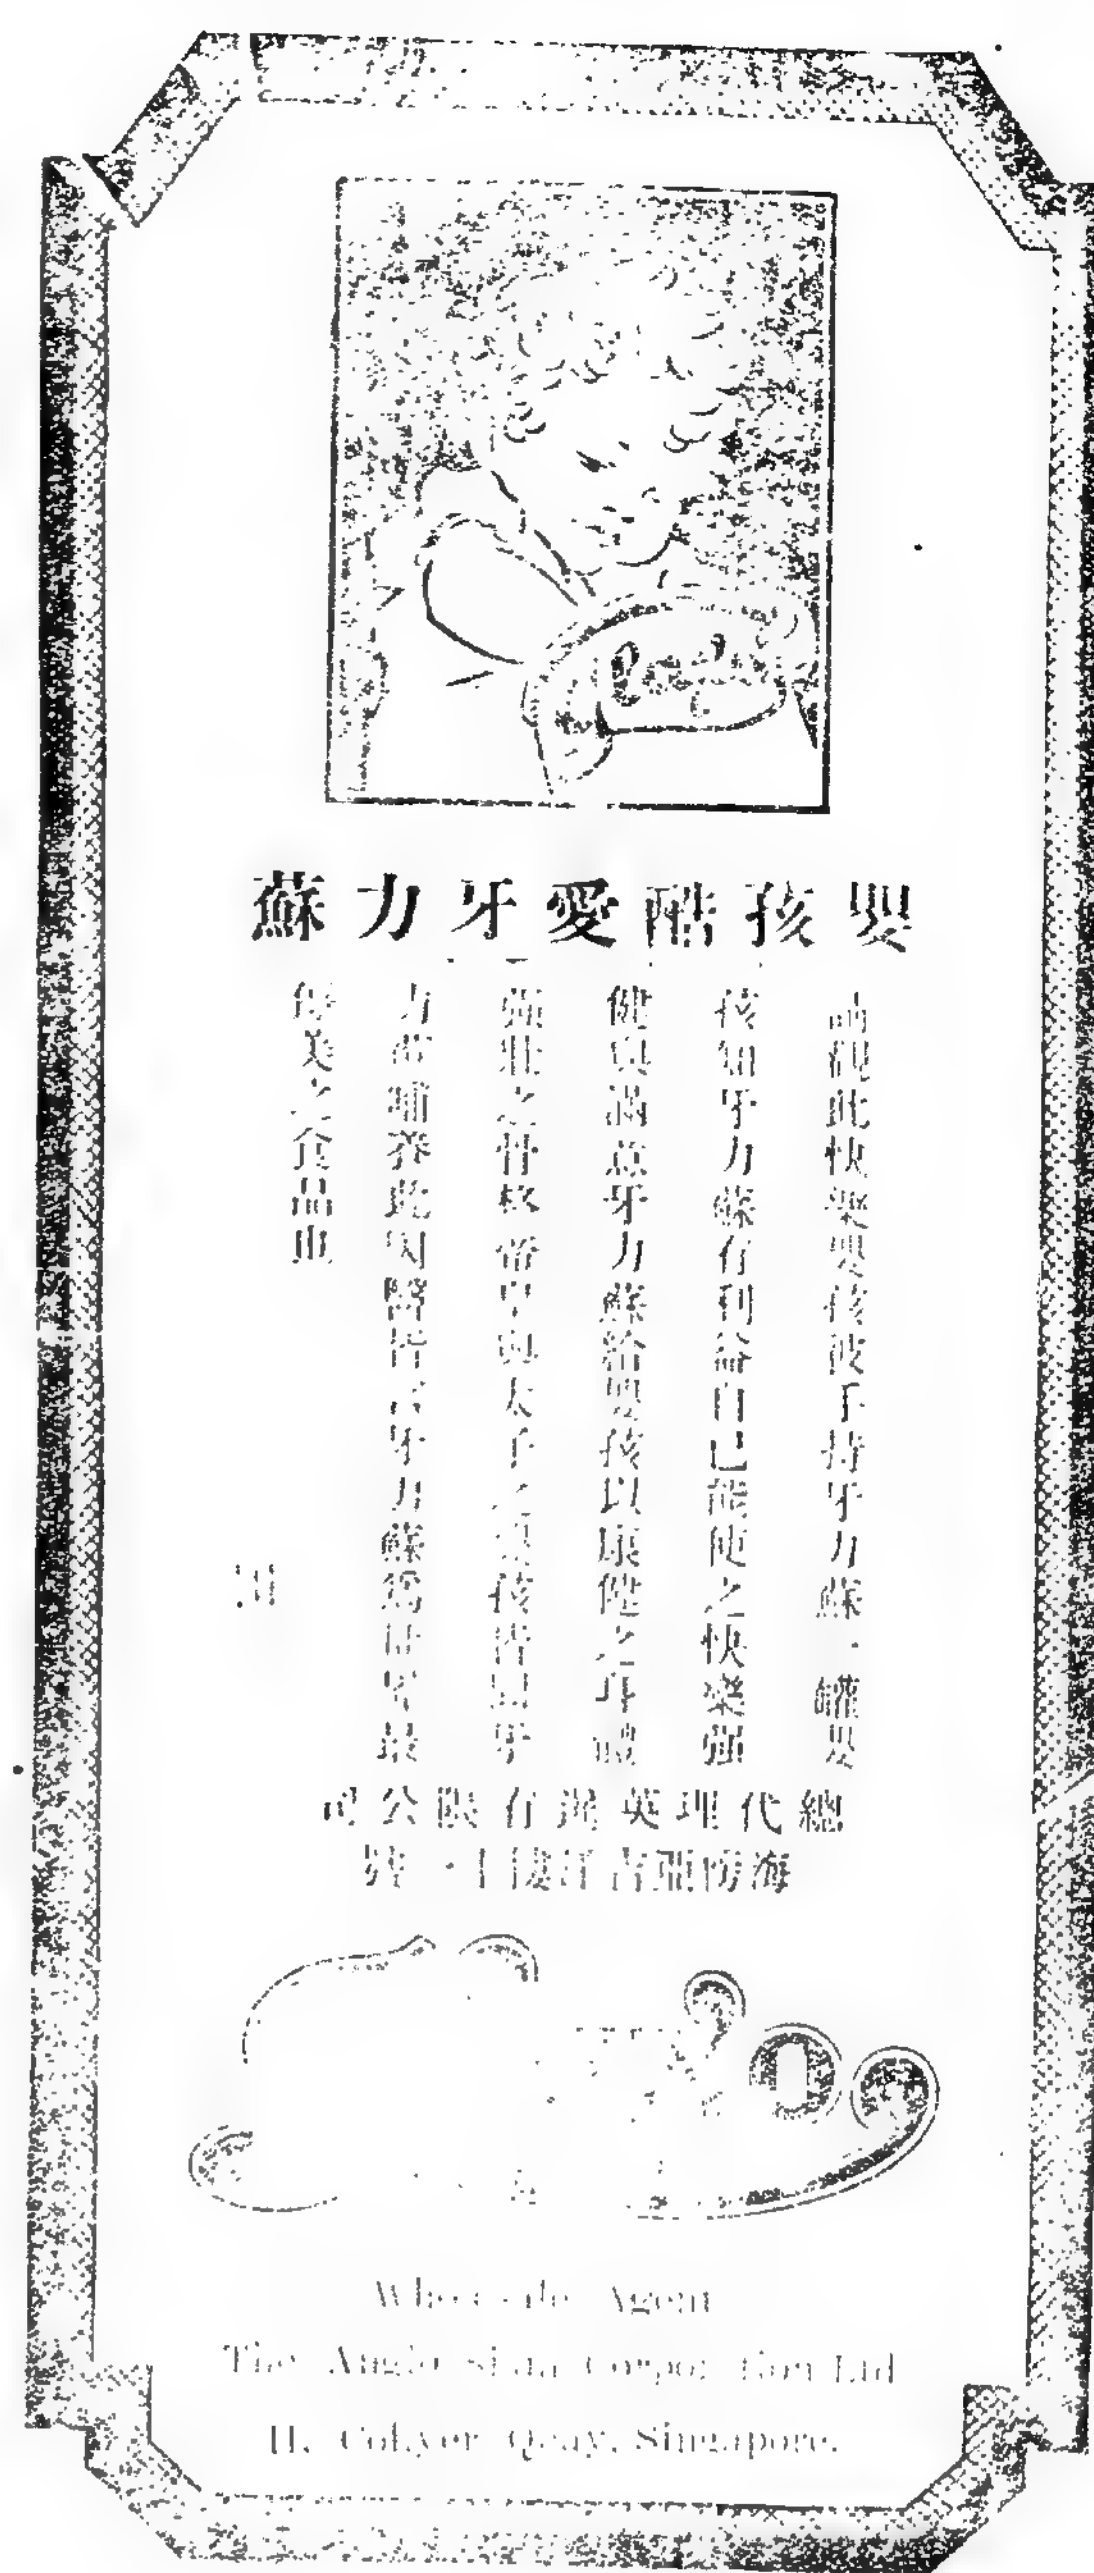 嬰孩酷愛牙力蘇
請觀此快樂嬰孩彼手持牙力蘇一罐嬰
孩知牙力蘇有利益自己能使之快樂強
健與滿意牙力蘇給嬰孩以康健之身體
強壯之骨格帝皇與太子之嬰孩皆以牙
力蘇哺養此因醫皆言牙力蘇爲
最
美之食品也
總代理英暹有限公司
海傍亞吉洋樓十一號
Wholesale Agent
The Anglo Siam Corporation Ltd
11, Collyer Quay, Singapore.